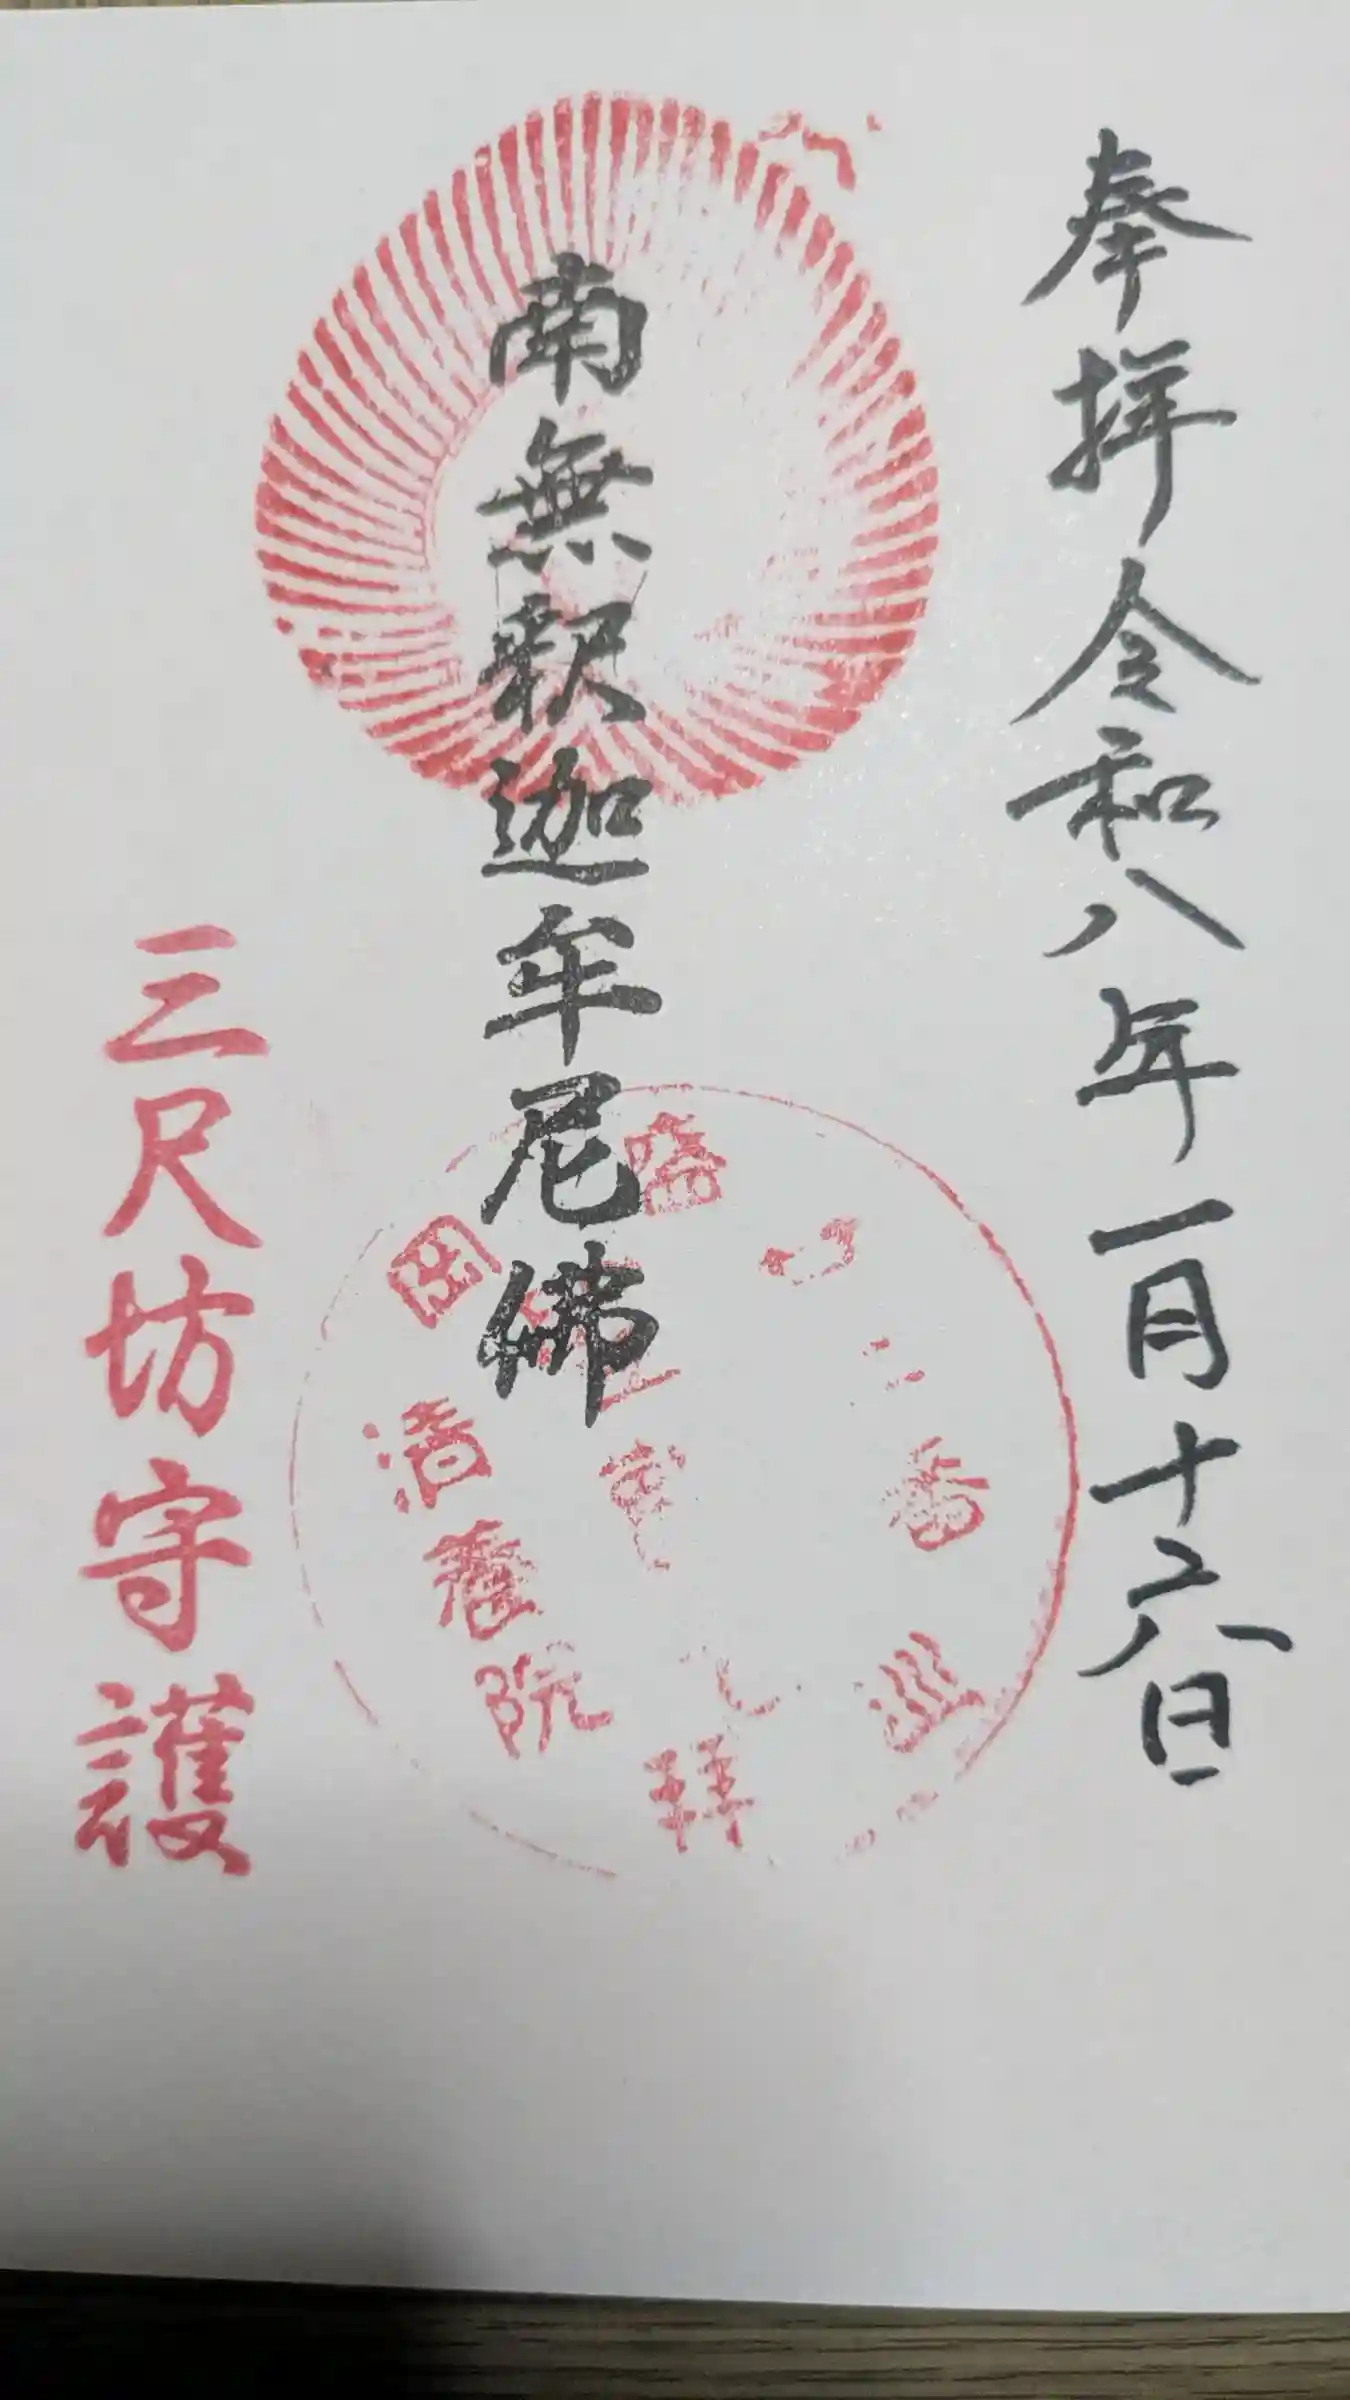 奉拝 令和八年一月十六日
南無釈迦牟尼佛
三尺坊守護
番
巡
拝
清養院